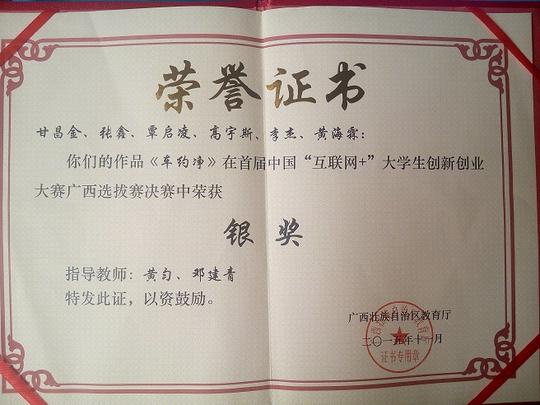 荣誉证书
甘昌金、张鑫、覃启凌、高宇斯、李杰、黄海霖:
你们的作品《车约净》在首届中国“互联网+”大学生创新创业
大赛广西选拔赛决赛中荣获
银奖
指导教师:黄匀、邓建青
特发此证,以资鼓励。
广西壮族自治区教育厅
二〇一五年十一月
证书专用章